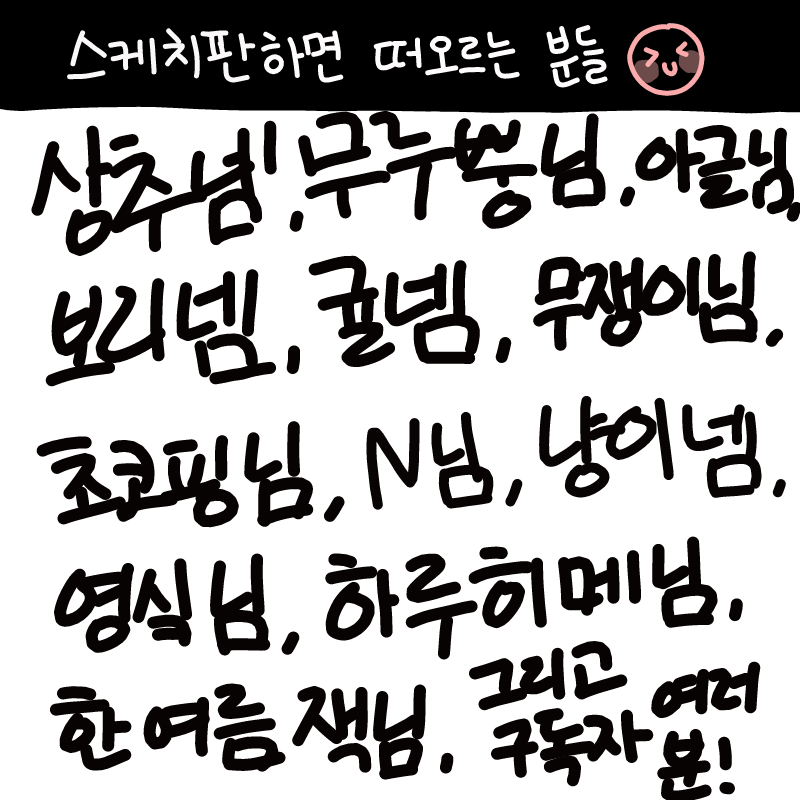 스케치판하면 떠오르는 분들
상추넴, 무루뿡님, 아귤님,
보리넴, 귤넴, 무쟁이님,
쵸쿄핑님, N님, 냥이넴,
영식님, 하루히메님,
한여름잭님, 그리고
구독자 여러분!